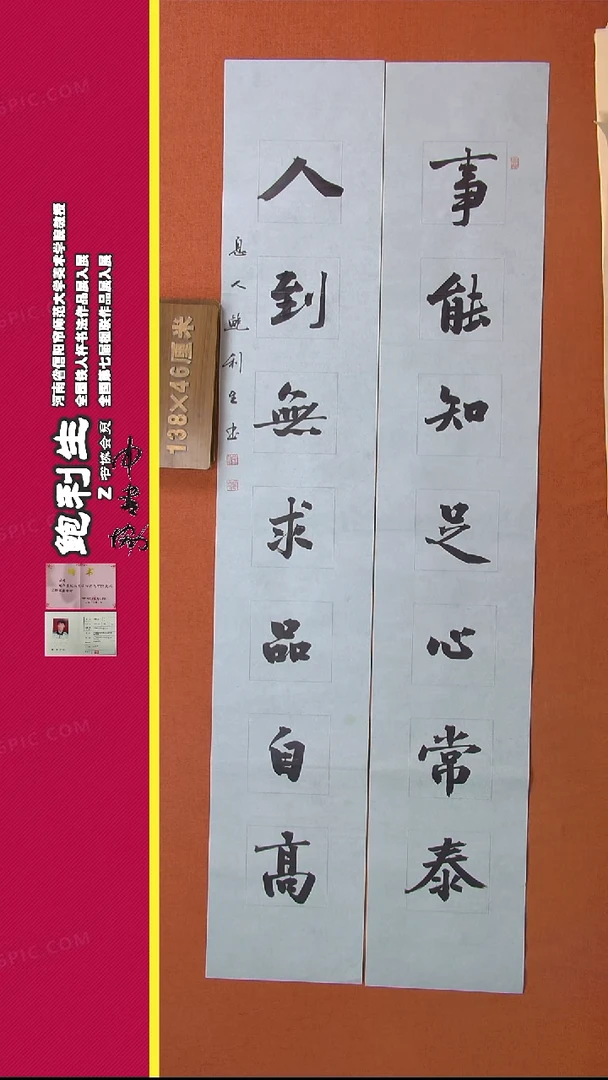 事能知足心常泰
人到無求品自高
息人鲍利生书
138×46厘米
河南省信阳市师范大学美术学院教授
全国铁人杯书法作品展入展
全国第七届楹联作品展入展
鲍利生
书协会员